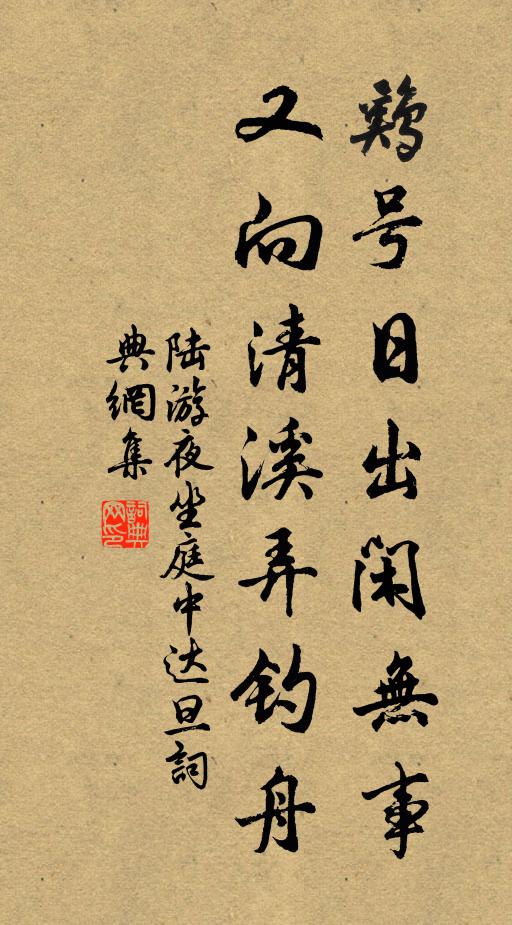 鷄号日出闲無事
又向清溪弄钓舟
陆游夜坐庭中达旦詞
典網集
詞典网印